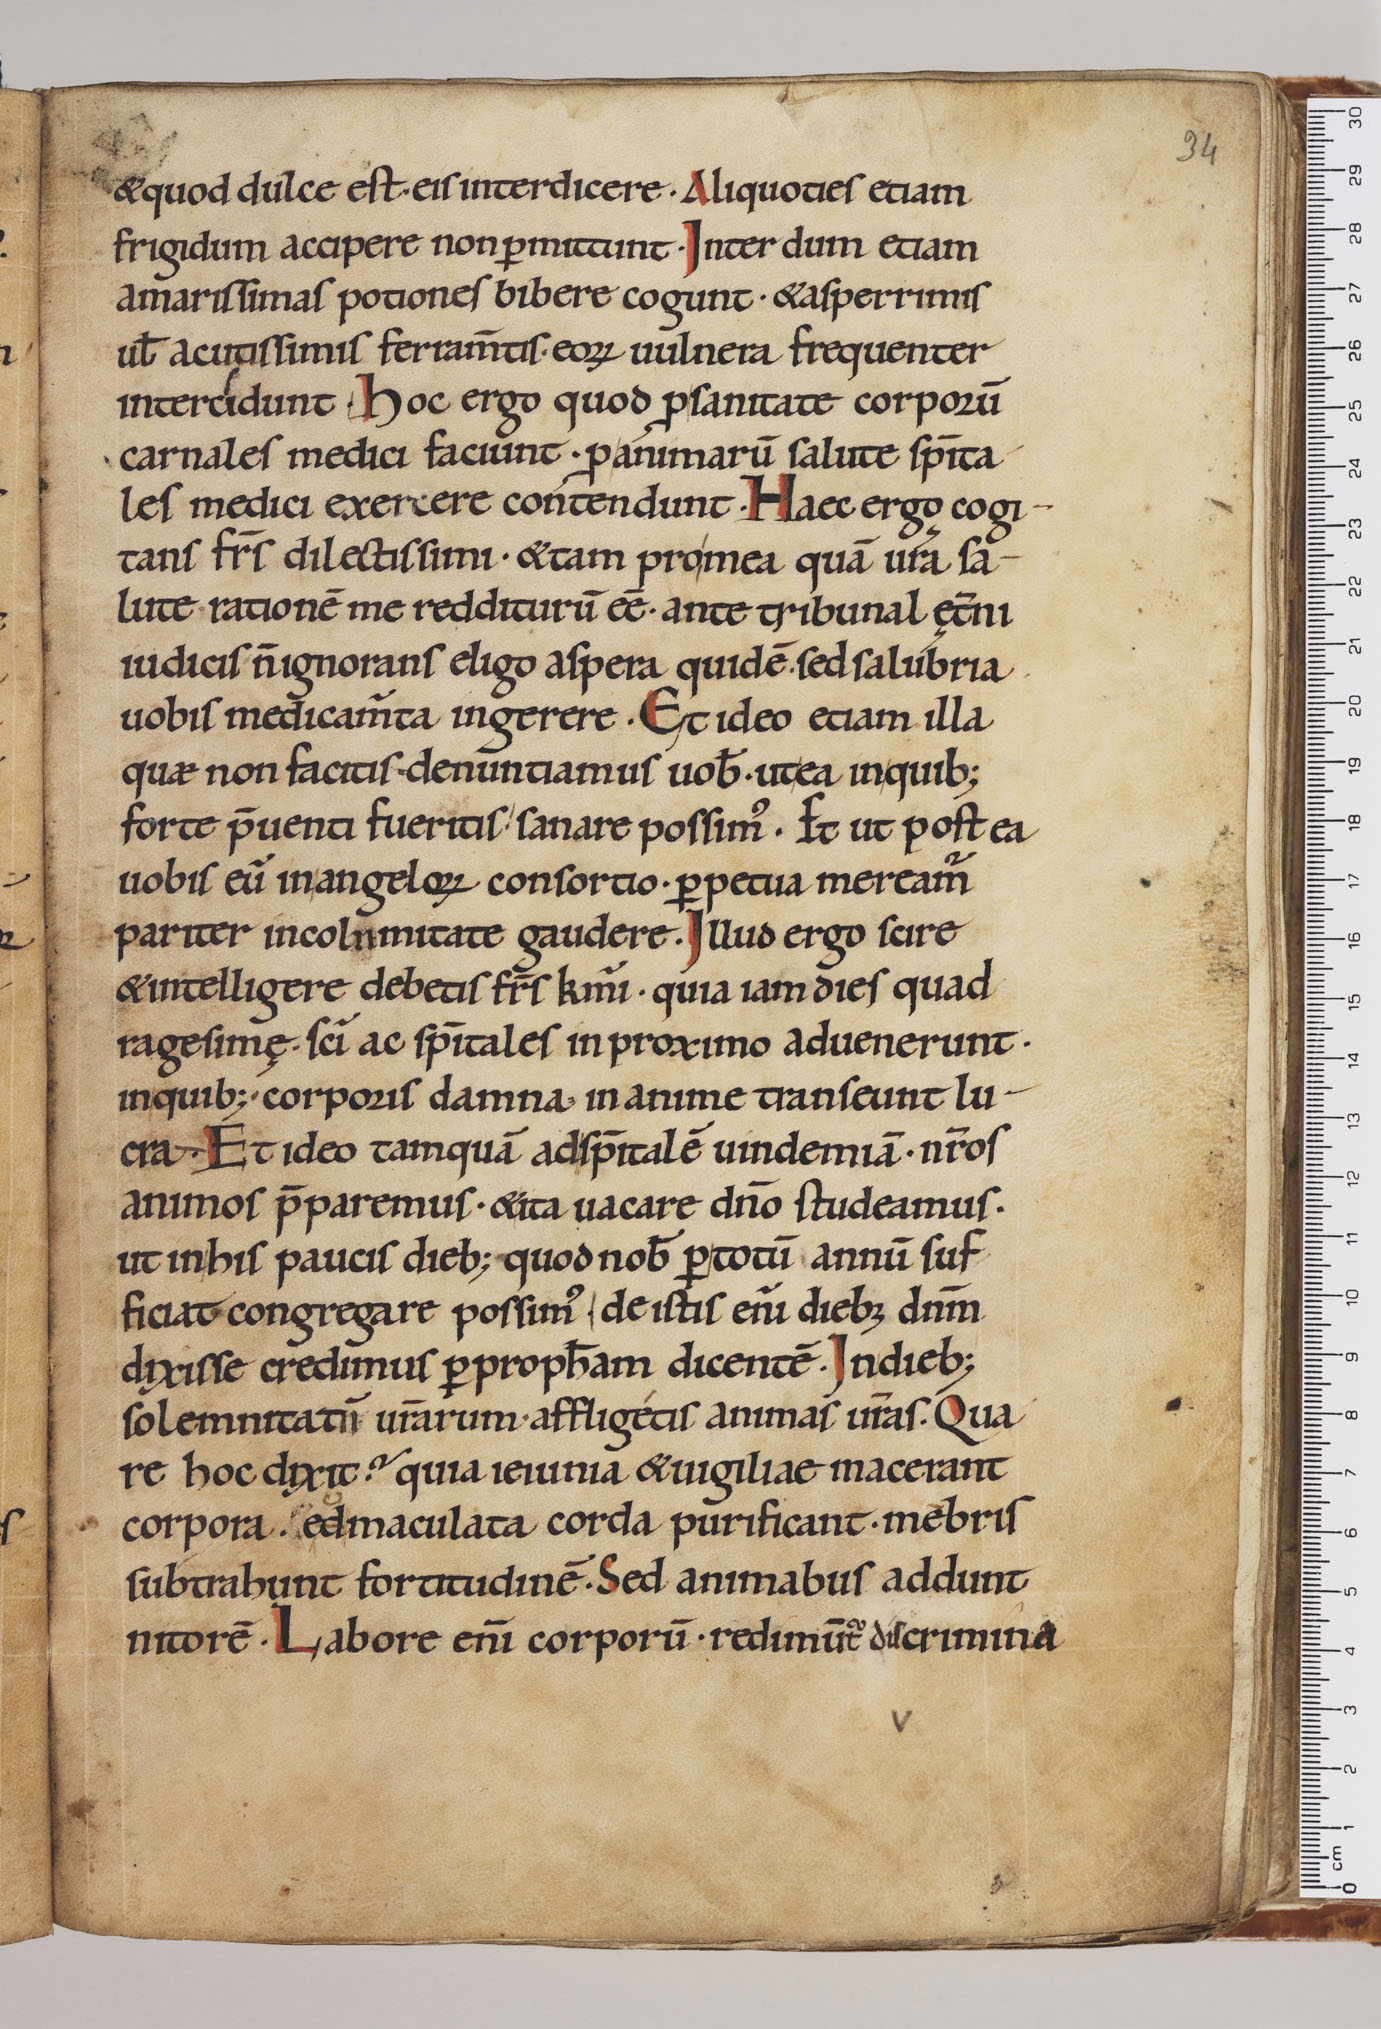 34
&quod dulce est·eis interdicere·Aliquoties etiam
frigidum accipere non ꝑmittunt·Inter dum etiam
amarissimas potiones bibere cogunt·&asperrimis
uł acutissimis ferram̄tis·eoꝝ uulnera frequenter
intercidunt·Hoc ergo quod ꝓsanitate corporū
carnales medici faciunt·ꝓanimarū salute sp̄ita
les medici exercere contendunt·Haec ergo cogi-
tans fr̄s dilectissimi·&tam pro mea quā ur̄a sa-
lute rationē me redditurū eē·ante tribunal ęt̄ni
iudicis n̄ignorans eligo aspera quidē·sed salubria
uobis medicam̄ta ingerere·Et ideo etiam illa
quæ non facitis·denuntiamus uob̄·utea inquib;
forte p̄uenti fueritis sanare possim᾿·Et ut post ea
uobis cū in angeloꝝ consortio·ꝑpetua meream̄
pariter incolumitate gaudere·Illud ergo scire
&intelligere debetis fr̄s km̄i·quia iam dies quad
ragesimę·sc̄i ac sp̄itales in proximo aduenerunt·
inquib;·corporis damna in anime transeunt lu-
cra·Et ideo tamquā adsp̄italē uindemiā·nr̄os
animos p̄paremus·&ita uacare dn̄o studeamus·
ut in his paucis dieb; quod nob̄ ꝑtotū annū suf
ficiat congregare possim᾿ de istis eni᷈ diebꝫ dn̄m
dixisse credimus ꝑproph̄am dicentē·Indieb;
solemnitatū ur̄arum·affligetis animas ur̄as·Qua
re hoc dixit? quia ieiunia &uigiliae macerant
corpora·sed maculata corda purificant·mebris
subtrahunt fortitudinē·Sed animabus addunt
nitorē·Labore eni᷈ corporū·redimūt᷑ discrimina
v